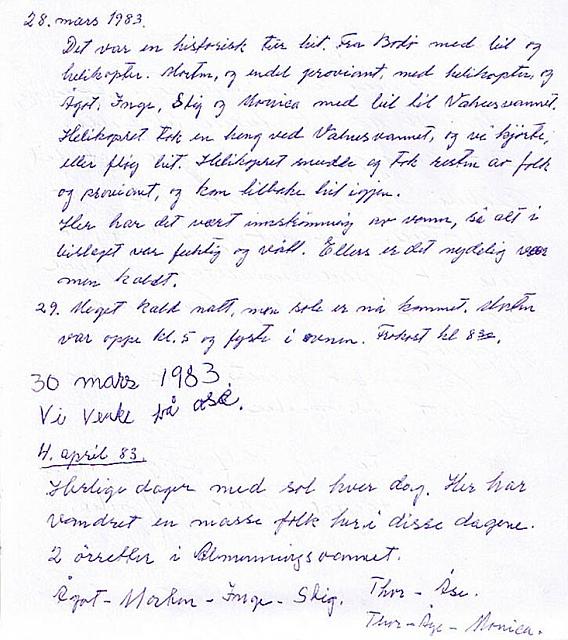 28. mars 1983.
Det var en historisk tur hit. Fra Bodø med bil og
helikopter. Morten, og endel proviant, med helikopter, og
Ågot, Inge, Stig og Monica med bil til Vatnvannet.
Helikopteret tok en heng ved Vatnvannet, og vi kjørte,
eller fløy hit. Helikopteret snudde og tok resten av folk
og proviant, og kom tilbake hit igjen.
Her har det vært innstrømning av vann, så alt i
uthuset var fuktig og vått. Ellers er det nydelig vær
men kaldt.
29. Meget kald natt, men sola er nå kommet. Morten
var oppe kl. 5 og fyrte i ovnen. Frokost kl 8 30.
30 mars 1983.
Vi Venke på ose.
4. april 83.
Herlige dager med sol hver dag. Her har
vandret en masse folk her i disse dagene.
2 ørretter i Almenningsvannet.
Ågot - Morten - Inge - Stig. Thor - Åse.
Thor - Åge - Monica.